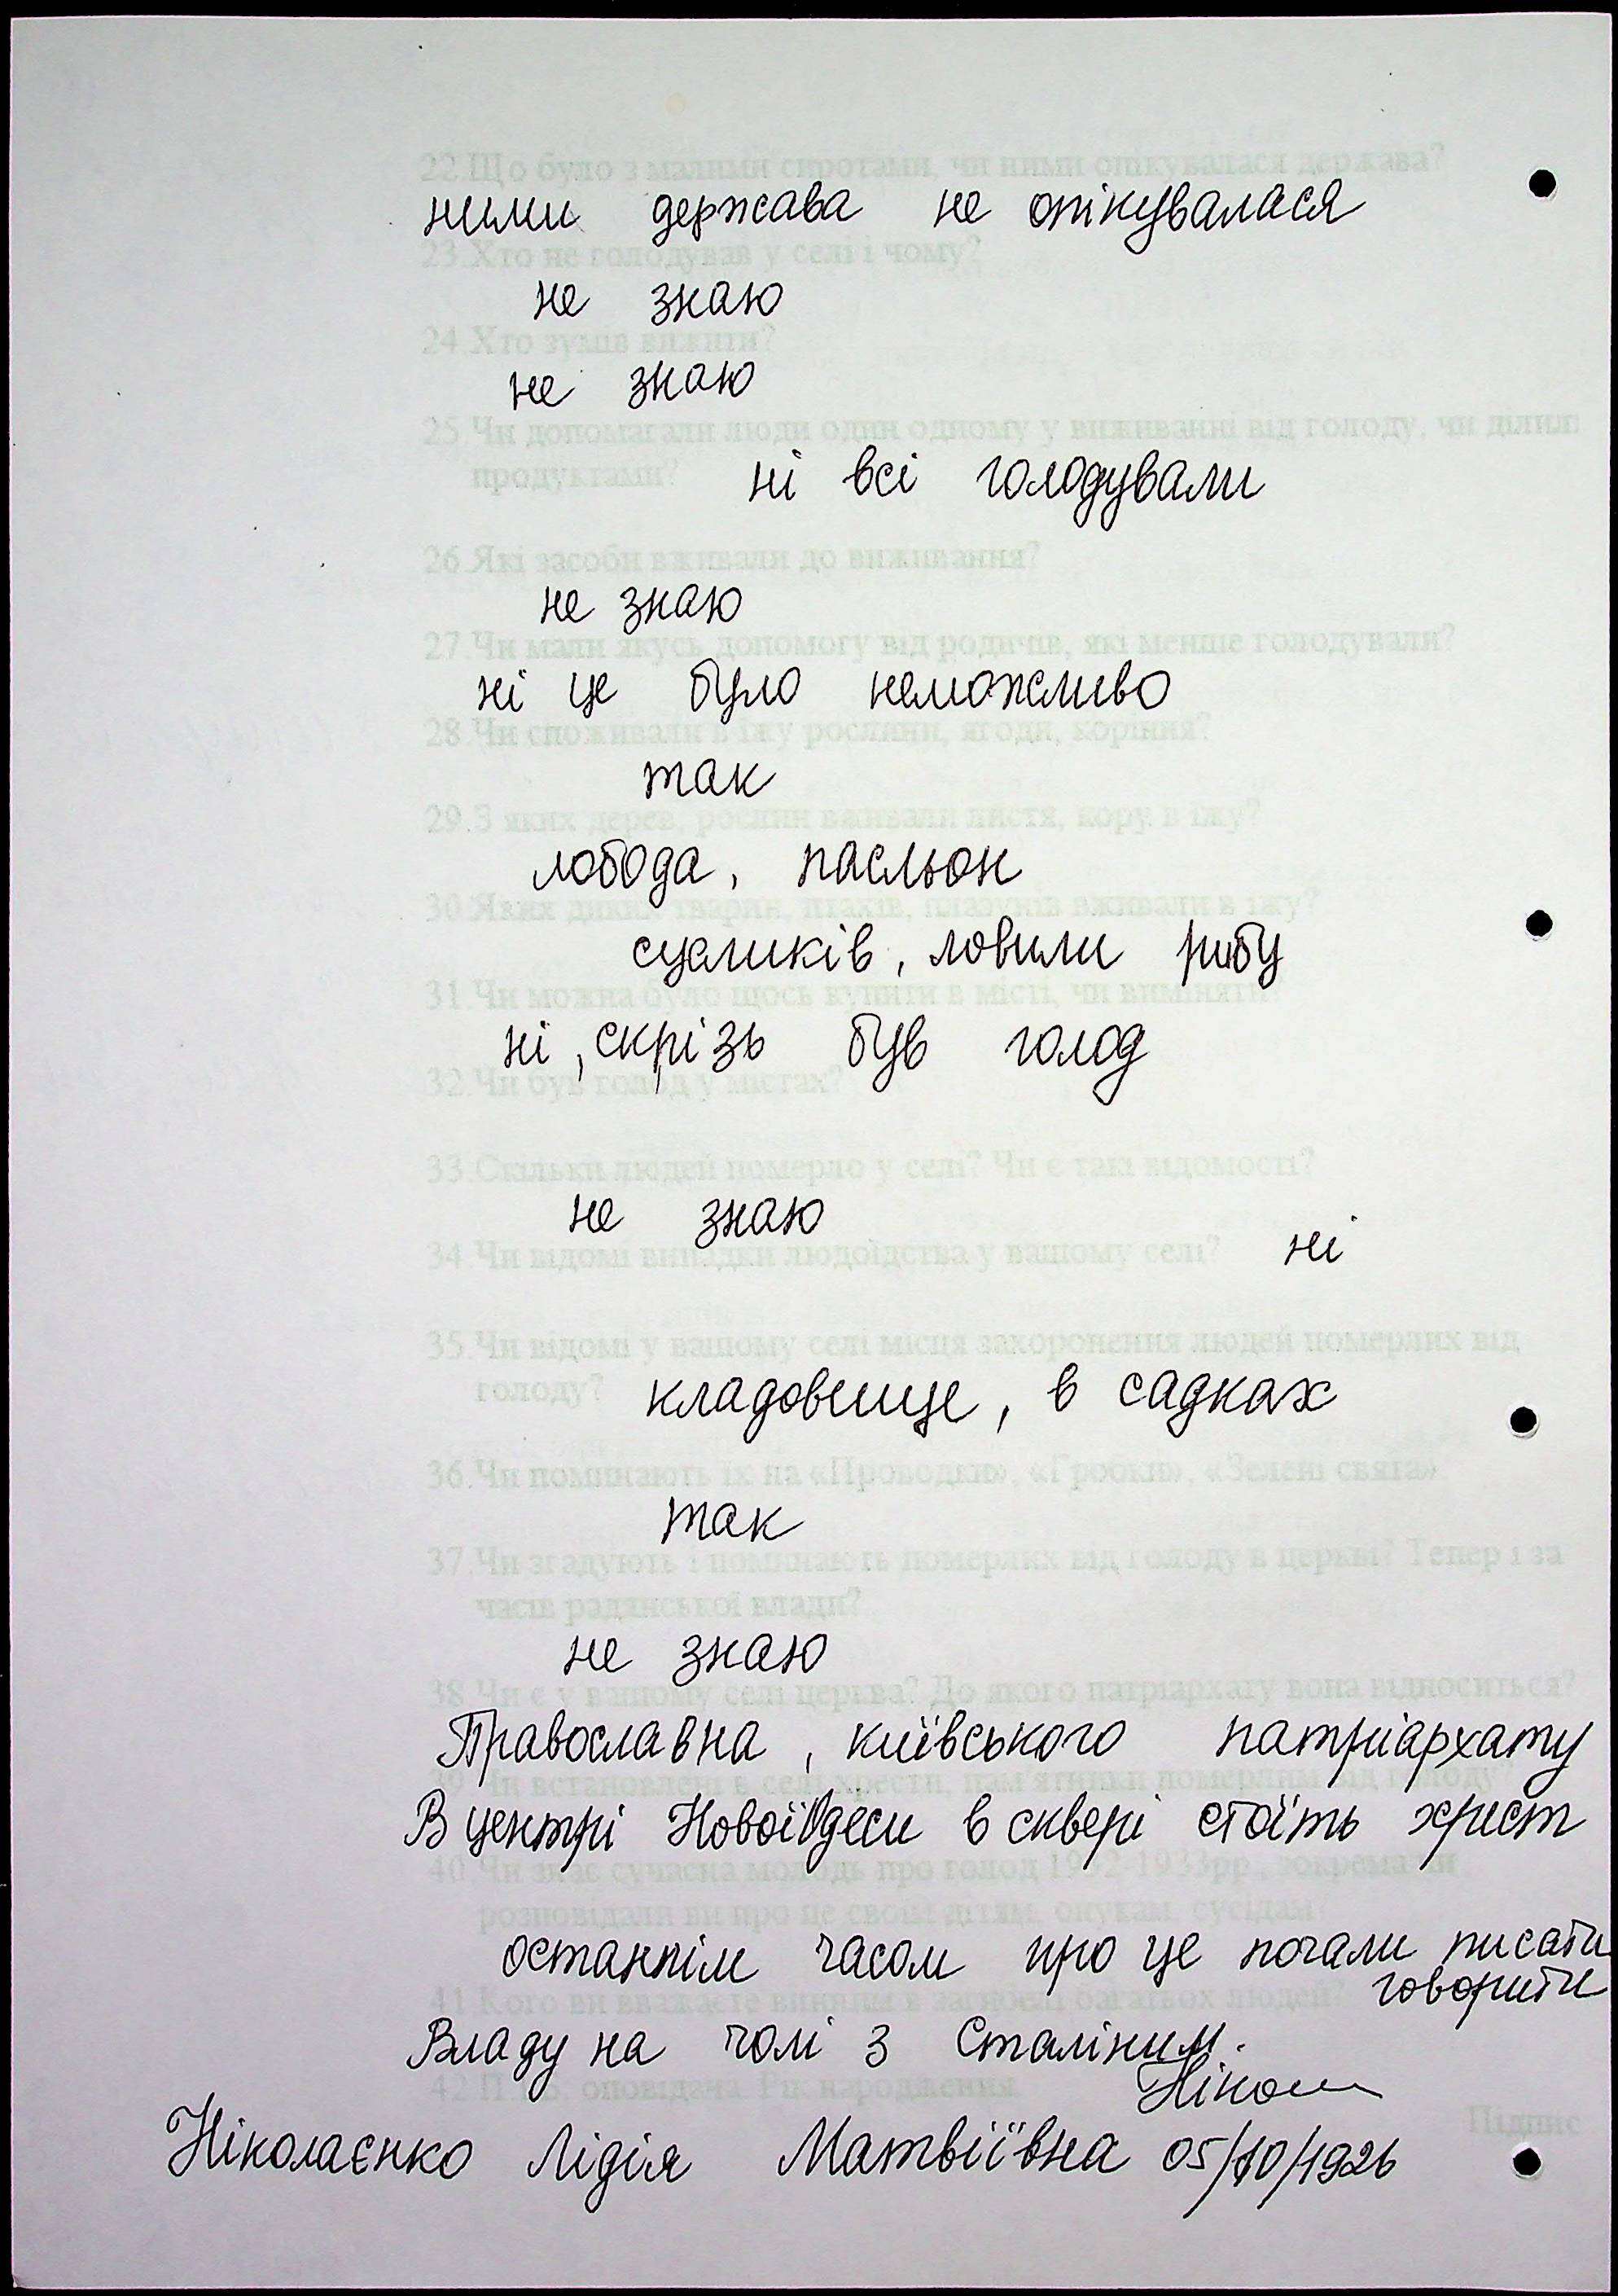 22.Що було з малими сиротами, чи ними опікувалася держава?
ними держава не опікувалася
23.Хто не голодував у селі і чому?
не знаю
24.Хто зумів вижити?
не знаю
25.Чи допомагали люди один одному у виживанні від голоду, чи ділил
продуктами? ні всі голодували
26.Які засоби вживали до виживання?
не знаю
27.Чи мали якусь допомогу від родичів, які менше голодували?
ні це було неможливо
28.Чи споживали в їжу рослини, ягоди, коріння?
так
29.З яких дерев, рослин вживали листя, кору в їжу?
лобода, пасльон
30.Яких диких тварин, птахів, плазунів вживали в їжу?
сусликів, ловили рибу
31.Чи можна було щось купити в місті, чи виміняти?
ні, скрізь був голод
32.Чи був голод у містах?
33.Скільки людей померло у селі? Чи є такі відомості?
не знаю
34.Чи відомі випадки людоїдства у вашому селі? ні
35.Чи відомі у вашому селі місця захоронення людей померлих від
голоду? кладовище, в садках
36.Чи поминають їх на «Проводки», «Гробки», «Зелені свята»
так
37.Чи згадують і поминають померлих від голоду в церкві? Тепер і за
часів радянської влади?
не знаю
38.Чи є у вашому селі церква? До якого патріархату вона відноситься?
Православна, київського патріархату
39.Чи встановлені в селі хрести, пам'ятники померлим від голоду?
В центрі НовоїОдеси в сквері стоїть хрест
40.Чи знає сучасна молодь про голод 1932-1933рр., зокрема чи
розповідали ви про це своїм дітям, онукам, сусідам?
останнім часом про це почали писати
говорити
41.Кого ви вважаєте винним в загибелі багатьох людей?
Владу на чолі з Сталіним.
42.П.І.Б. оповідача. Рік народження
Підпис
Ніколаєнко Лідія Матвіївна 05/10/1926